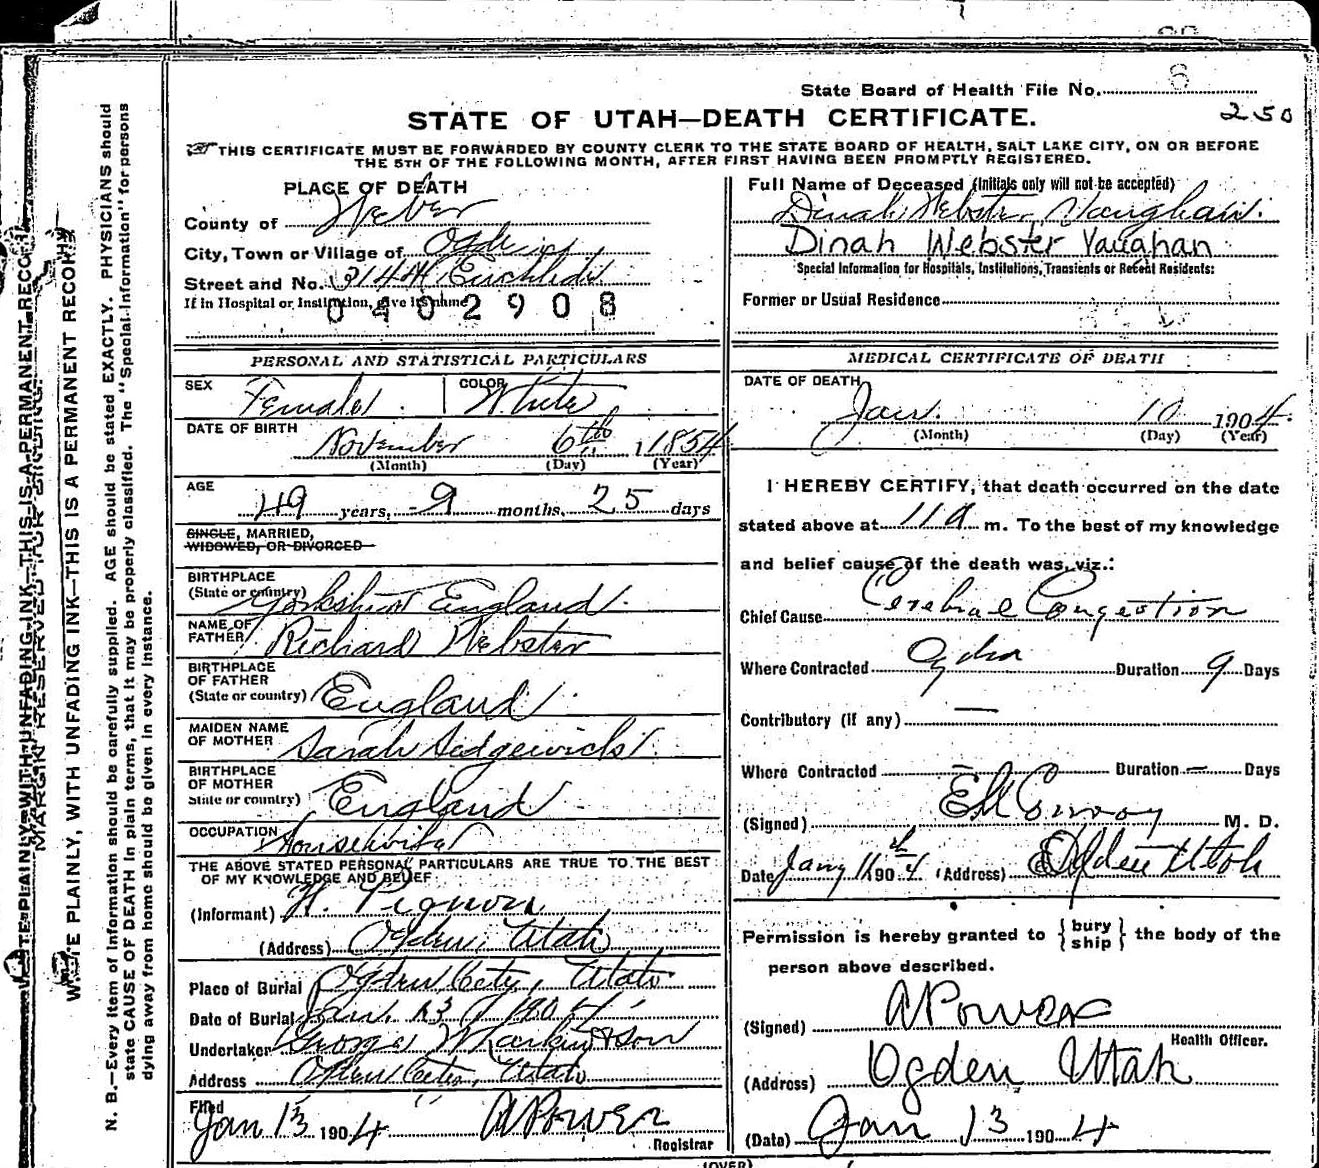 State Board of Health File No. 6
250
STATE OF UTAH—DEATH CERTIFICATE.
THIS CERTIFICATE MUST BE FORWARDED BY COUNTY CLERK TO THE STATE BOARD OF HEALTH, SALT LAKE CITY, ON OR BEFORE
THE 5TH OF THE FOLLOWING MONTH, AFTER FIRST HAVING BEEN PROMPTLY REGISTERED.
PLACE OF DEATH
County of Weber
City, Town or Village of Ogden
Street and No. 314
If in Hospital or Institution, give its name
0402908
PERSONAL AND STATISTICAL PARTICULARS
SEX Female COLOR White
DATE OF BIRTH
November 6th 1854
(Month) (Day) (Year)
AGE
49 years, 9 months, 25 days
SINGLE, MARRIED,
WIDOWED, OR DIVORCED
BIRTHPLACE
(State or country) Yorkshire England
NAME OF
FATHER Richard Webster
BIRTHPLACE
OF FATHER
(State or country) England
MAIDEN NAME
OF MOTHER Sarah Sedgewick
BIRTHPLACE
OF MOTHER
State or country) England
OCCUPATION Housewife
THE ABOVE STATED PERSONAL PARTICULARS ARE TRUE TO THE BEST
OF MY KNOWLEDGE AND BELIEF
(Informant) H. Pignon
(Address) Ogden, Utah
Place of Burial Ogden City, Utah
Date of Burial Jan. 13 1904
Undertaker George W. Larkin & Son
Address Ogden City, Utah
Filed
Jan 13 1904 A Power
Registrar
Full Name of Deceased (Initials only will not be accepted)
Dinah Webster Vaughan.
Dinah Webster Vaughan
Special Information for Hospitals, Institutions, Transients or Recent Residents:
Former or Usual Residence
MEDICAL CERTIFICATE OF DEATH
DATE OF DEATH
Jan. 10 1904.
(Month) (Day) (Year)
I HEREBY CERTIFY, that death occurred on the date
stated above at 11 a m. To the best of my knowledge
and belief cause of the death was, viz.:
Chief Cause Cerebral Congestion
Where Contracted Ogden Duration 9 Days
Contributory (if any) —
Where Contracted Duration — Days
(Signed) E M Conroy M. D.
Date Jany 11th 1904 (Address) Ogden Utah
Permission is hereby granted to { bury ship } the body of the
person above described.
(Signed) A Power
Health Officer.
(Address) Ogden Utah
(Date) Jan 13 1904
(OVER)
WRITE PLAINLY WITH UNFADING INK—THIS IS A PERMANENT RECORD
MARGIN RESERVED FOR BINDING.
WRITE PLAINLY, WITH UNFADING INK—THIS IS A PERMANENT RECORD
N. B.—Every item of information should be carefully supplied. AGE should be stated EXACTLY. PHYSICIANS should
state CAUSE OF DEATH in plain terms, that it may be properly classified. The "Special Information" for persons
dying away from home should be given in every instance.